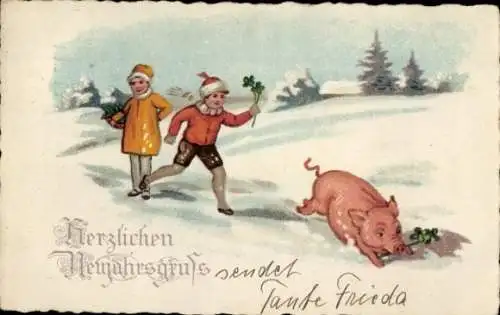 Herzlichen
Neujahrsgruss
sendet
Tante Frieda